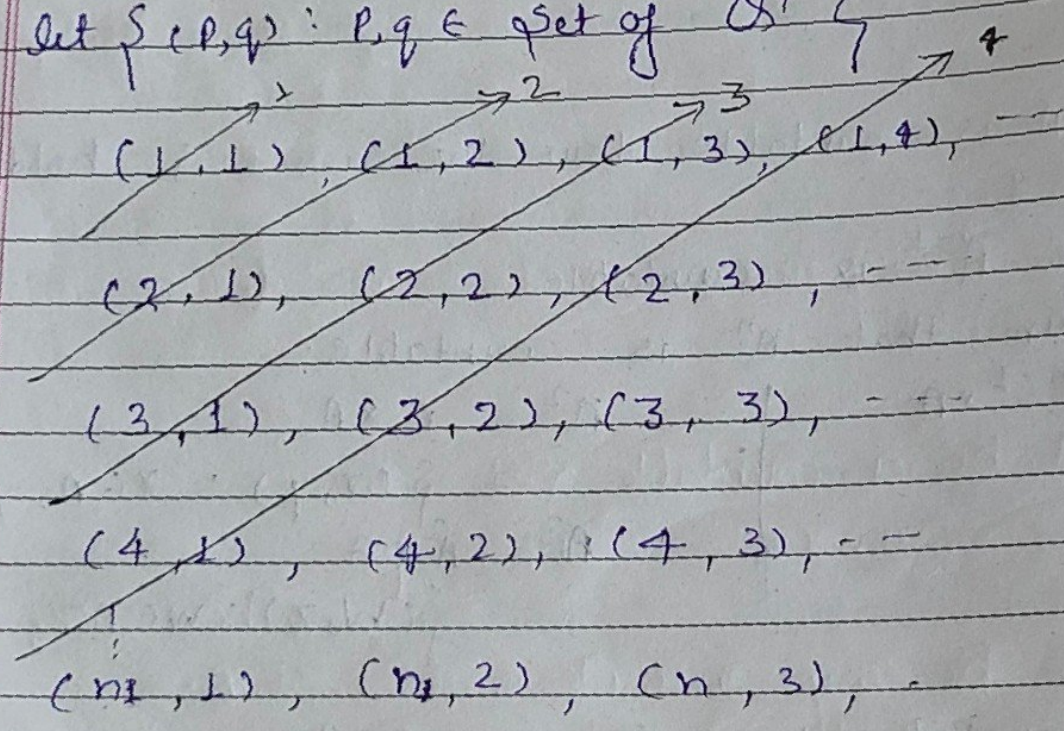 let { (p,q) : p,q ∈ set of Q' }
1 2 3 4
(1,1), (1,2), (1,3), (1,4), ---
(2,1), (2,2), (2,3), ---
(3,1), (3,2), (3,3), ---
(4,1), (4,2), (4,3), ---
(n,1), (n,2), (n,3), -